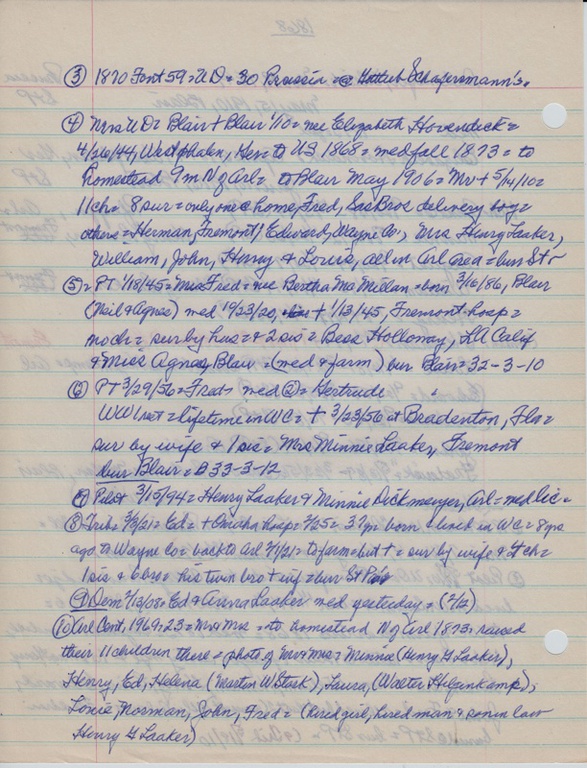 1868
③ 1870 Font 59 = UD = 30 Prussia = @ Gottlieb Schafersmann's.
④ Mrs UD = Blair + Blair '10 = nee Elizabeth Hovendick =
4/26/44, Westphalen, Here to US 1868 = med fall 1873 = to
homestead 9 m N of Arl = to Blair May 1906 = Mv + 5/14/10 =
11 ch = 8 sur = only one @ home, Fred, Sas Bros delivery boy =
others = Herman, Fremont / Edward, Wayne Co, Mrs Henry Laaker,
William, John, Henry & Louis, all in Arl area = bur St
⑤ = PT 1/18/45 = Mrs Fred = nee Bertha Mc Millan = born 3/6/86, Blair
(Neil & Agnes) med 10/23/20, + 1/13/45, Fremont hosp =
no ch = sur by hus & 2 sis = Bess Holloway, LA Calif
& Miss Agnes, Blair = (med & farm) bur Blair = 32-3-10
⑥ PT 3/29/56 = Fred = med ② = Gertrude
WW1 vet = lifetime in WC = + 3/23/56 at Bradenton, Fla =
sur by wife & 1 sis = Mrs Minnie Laaker, Fremont
bur Blair = B 33-3-12
⑦ Pilot 3/15/94 = Henry Laaker & Minnie Dickmeyer, Arl = med lic =
⑧ Trib = 3/3/21 = Ed = + Omaha hosp = 2/25 = 37 yr born & lived in WC = 8 yrs
ago to Wayne Co = back to Arl 2/1/21 = to farm = but + = sur by wife & ch =
1 sis & 6 bro = his twin bro + inf = bur St Pa's
⑨ Dem 2/13/08 = Ed & Anna Laaker med yesterday = (2/12)
⑩ Arl Cent, 1969 = 23 = Mr & Mrs = to homestead N of Arl 1873 = raised
their 11 children there = photo of Mr & Mrs = Minnie (Henry G Laaker),
Henry, Ed, Helena (Martin W Stork), Laura, (Walter Hilgenkamp),
Louie, Norman, John, Fred = (hired girl, hired man & son in law
Henry G Laaker)